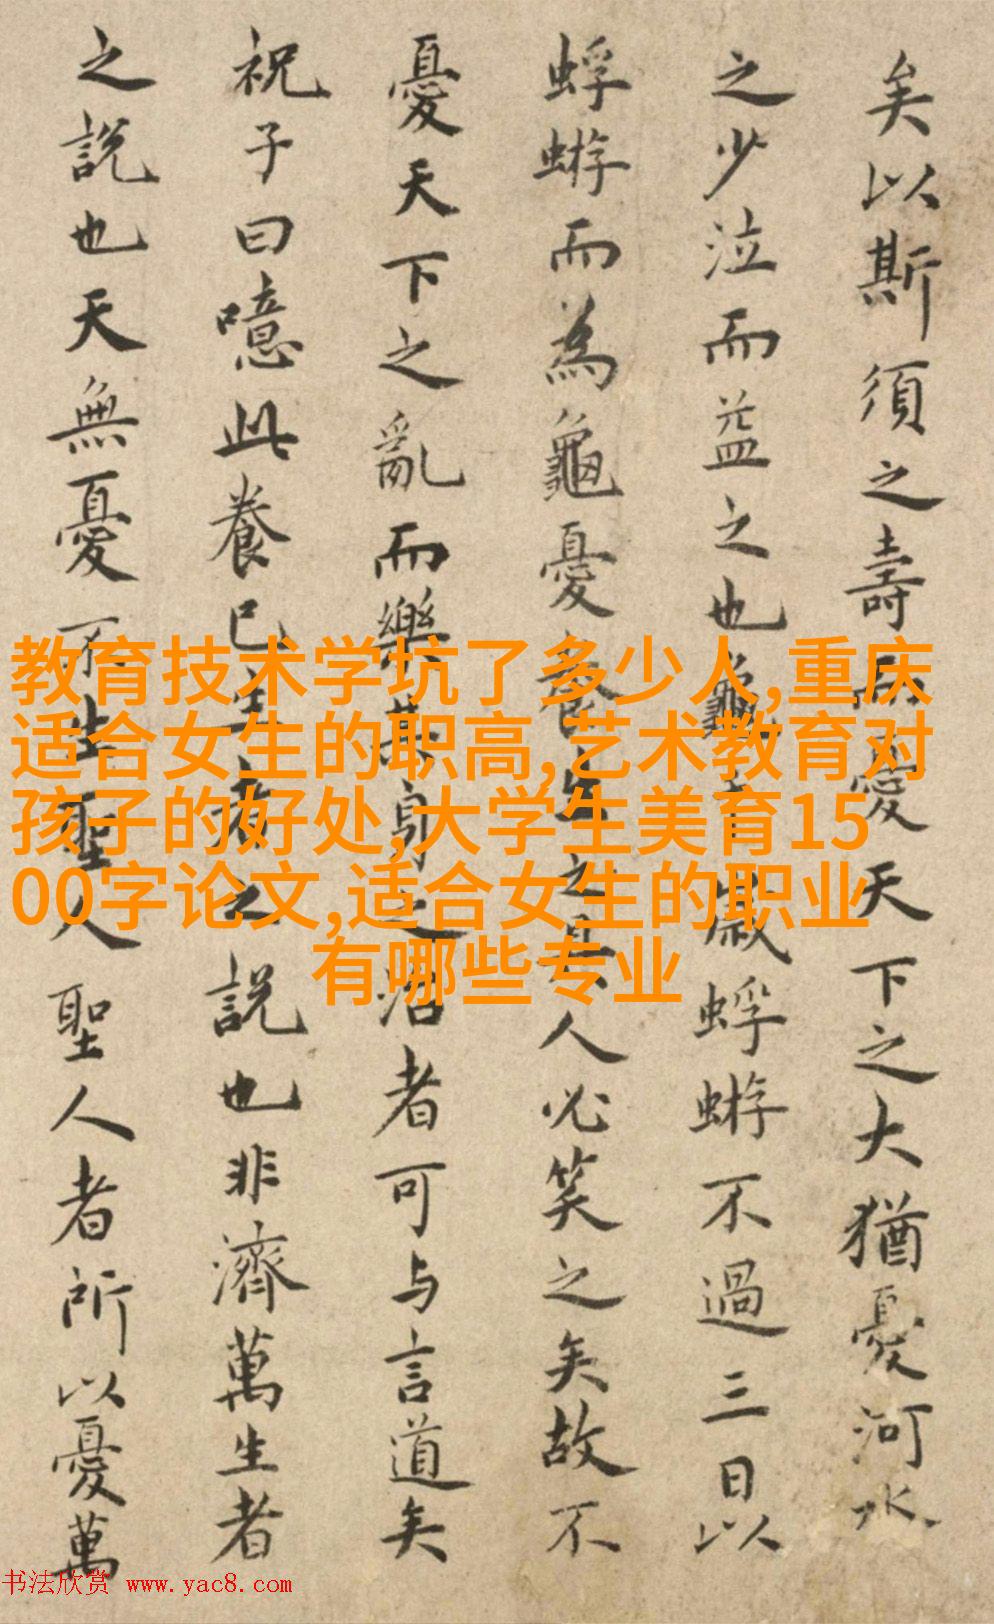 矣以斯須之壽而憂天下之大猶憂河水
之少泣而益之也龜歲蜉蝣不過三日以
蜉蝣而為龜憂養生之具人必笑之矣故不
憂天下之亂而樂其身之治者可与言道矣
祝子曰噫此養已生者之說也非濟萬生者
之說也天無憂不生聖人聖人者所以憂萬
教育技术学坑了多少人,重庆
适合女生的职高,艺术教育对
孩子的好处,大学生美育15
00字论文,适合女生的职业
有哪些专业
书法欣赏 www.yac8.com